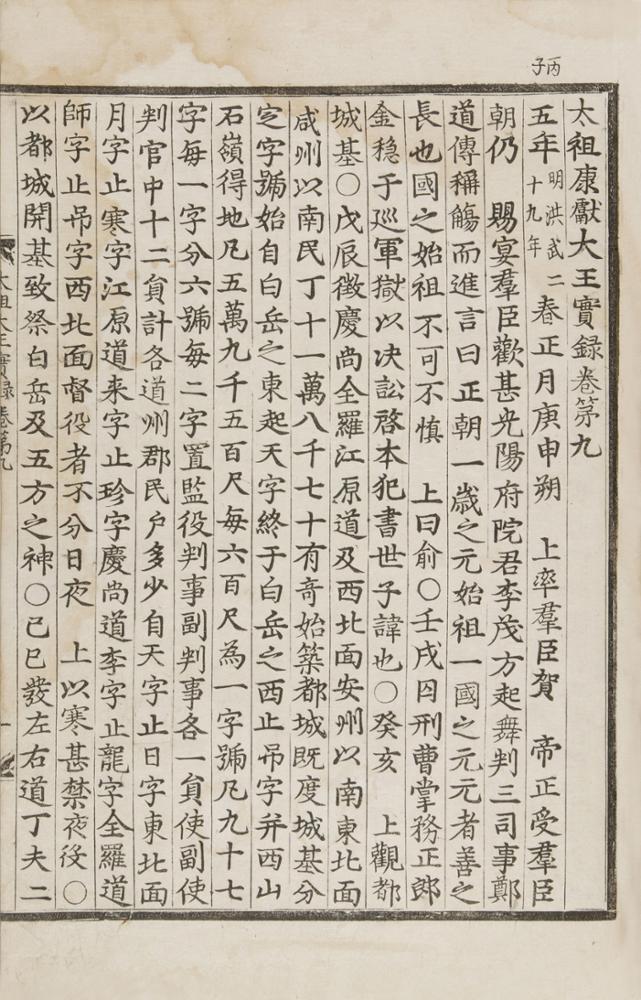 丙子
太祖康獻大王實録卷第九
五年明洪武二十九年春正月庚申朔 上率羣臣賀 帝正受羣臣
朝仍 賜宴羣臣歡甚光陽府院君李茂方起舞判三司事鄭
道傳稱觴而進言曰正朝一歲之元始祖一國之元元者善之
長也國之始祖不可不慎 上曰俞○壬戌囚刑曹掌務正郎
金穏于巡軍獄以决訟啓本犯書世子諱也○癸亥 上觀都
城基○戊辰徵慶尚全羅江原道及西北面安州以南東北面
咸州以南民丁十一萬八千七十有竒始築都城既度城基分
定字號始自白岳之東起天字終于白岳之西止吊字并西山
石嶺得地凡五萬九千五百尺每六百尺為一字號凡九十七
字每一字分六號每二字置監役判事副判事各一貟使副使
判官中十二貟計各道州郡民户多少自天字止日字東北面
月字止寒字江原道来字止珍字慶尚道李字止龍字全羅道
師字止吊字西北面督役者不分日夜 上以寒甚禁夜役○
以都城開基致祭白岳及五方之神○己巳發左右道丁夫二
太祖大王實録卷第九
一